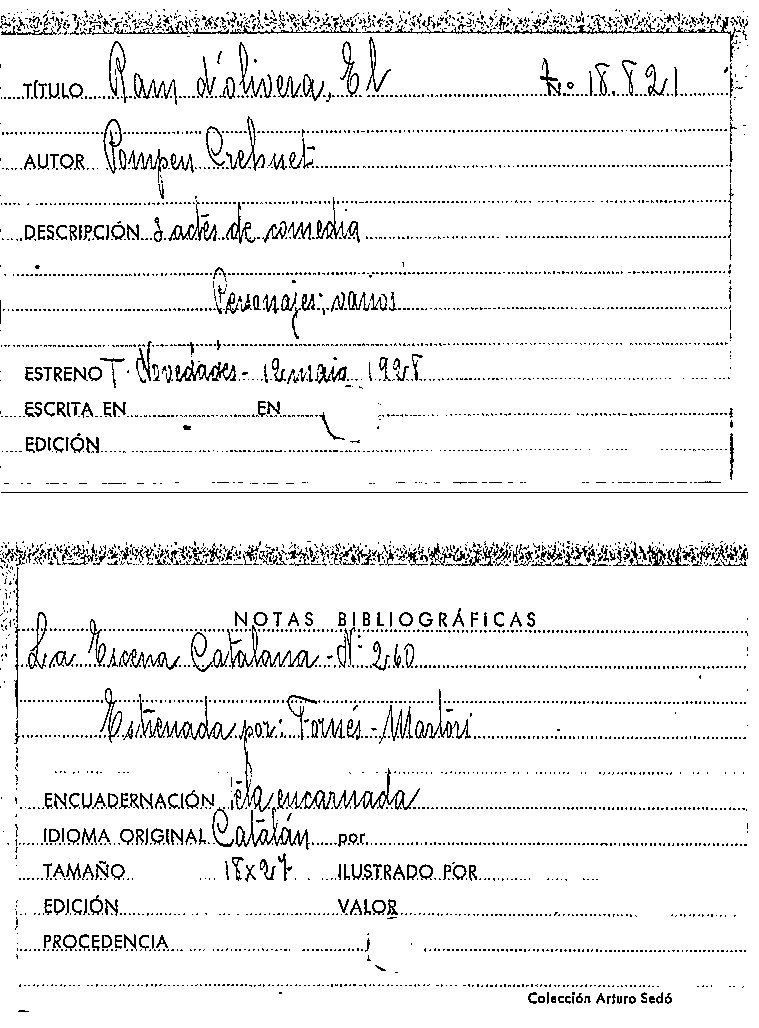 TÍTULO Ram d'olivera, El t.o 18.821
AUTOR Pompeu Crehuet
DESCRIPCIÓN 3 actes de comedia
Personajes; varios
ESTRENO T. Novedades - 12 maig 1928
ESCRITA EN EN
EDICIÓN
NOTAS BIBLIOGRÁFICAS
La Escena Catalana - Nº 260
Estrenada por: Fornés - Martori
ENCUADERNACIÓN Tela encarnada
IDIOMA ORIGINAL Catalán por
TAMAÑO 18x27 ILUSTRADO POR
EDICIÓN VALOR
PROCEDENCIA
Colección Arturo Sedó